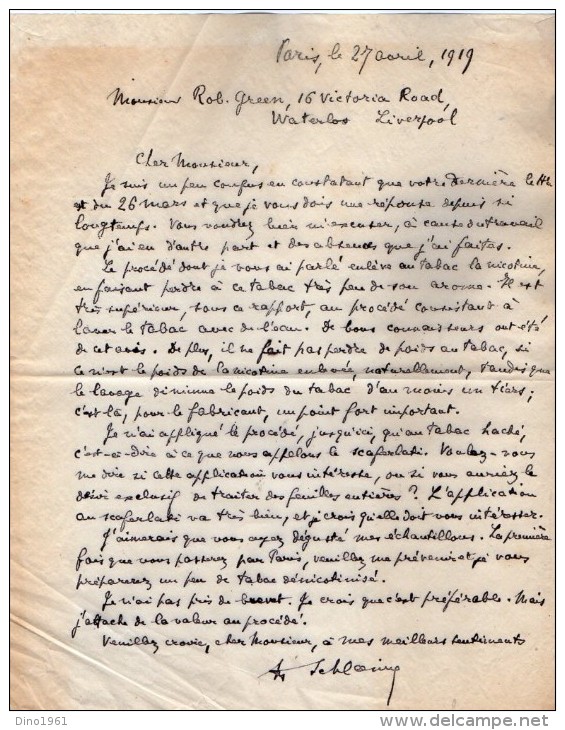 Paris, le 27 avril, 1919
Monsieur Rob. Green, 16 Victoria Road,
Waterloo Liverpool
Cher Monsieur,
Je suis un peu confus en constatant que votre dernière lettre
est du 26 mars et que je vous dois une réponse depuis si
longtemps. Vous voudrez bien m'excuser, à cause du travail
que j'ai eu d'autre part et des absences que j'ai faites.
Le procédé dont je vous ai parlé enlève au tabac la nicotine,
en faisant perdre à ce tabac très peu de son arome. Il est
très supérieur, sous ce rapport, au procédé consistant à
laver le tabac avec de l'eau. De bons connaisseurs ont été
de cet avis. De plus, il ne fait pas perdre de poids au tabac, si
ce n'est le poids de la nicotine enlevée, naturellement, tandis que
le lavage diminue le poids du tabac d'au moins un tiers;
c'est là, pour le fabricant, un point fort important.
Je n'ai appliqué le procédé, jusqu'ici, qu'au tabac haché,
c'est-à-dire à ce que nous appelons le scaferlati. Voulez-vous
me dire si cette application vous intéresse, ou si vous auriez le
désir exclusif de traiter des feuilles entières? L'application
au scaferlati va très bien, et je crois qu'elle doit vous intéresser.
J'aimerais que vous ayez dégusté mes échantillons. La première
fois que vous passerez par Paris, veuillez me prévenir et je vous
préparerai un peu de tabac dénicotinisé.
Je n'ai pas pris de brevet. Je crois que c'est préférable. Mais
j'attache de la valeur au procédé.
Veuillez croire, cher Monsieur, à mes meilleurs sentiments
Dino1961
www.delcampe.net